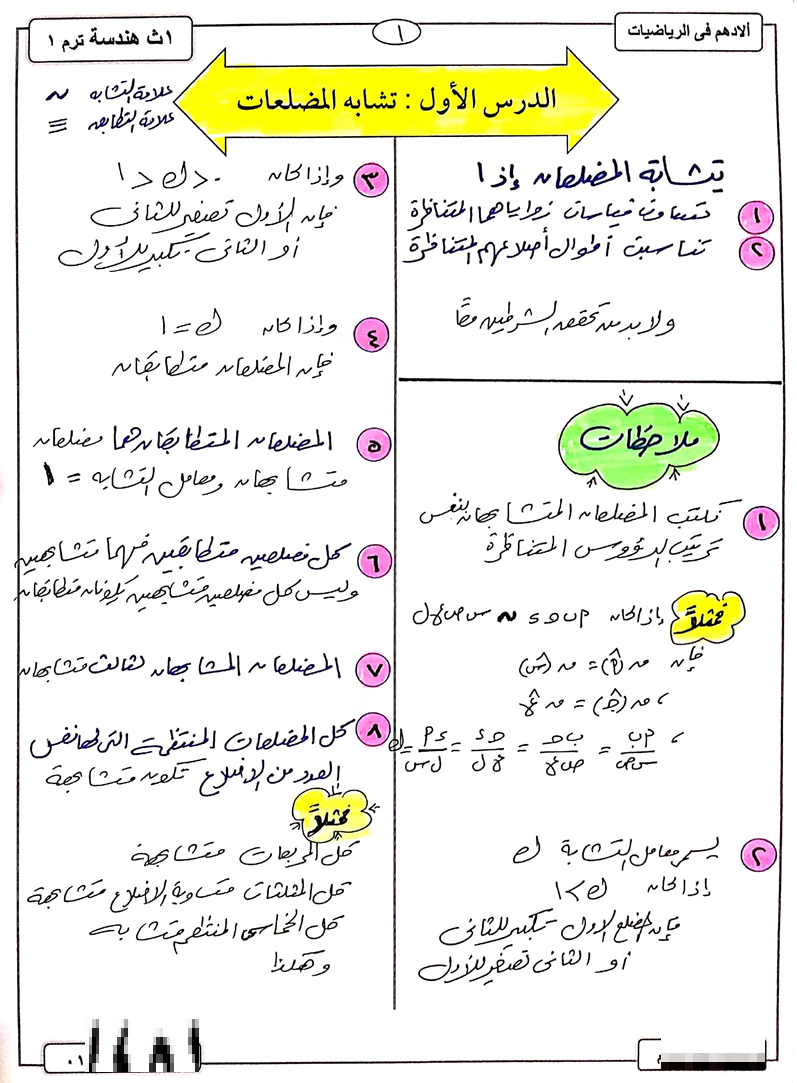 الادهم فى الرياضيات
١
١ث هندسة ترم ١
الدرس الأول : تشابه المضلعات
علامة التشابه ~
علامة التطابق ≡
يتشابة المضلعان إذا
١ تساوت قياسات زواياهما المتناظرة
٢ تناسبت أطوال أضلاعهم المتناظرة
ولابد من تحقق الشرطين معًا
ملاحظات
١ نكتب المضلعان المتشابهان بنفس
ترتيب الرؤوس المتناظرة
فمثلاً إذا كان ٢ب حـ ء ~ س ص ع ل
فإن ق(٢̂) = ق(س̂)
، ق(حـ̂) = ق ع̂
، ٢ب/س ص = ب حـ/ص ع = حـ ء/ع ل = ء ٢/ل س = ك
٢ يسمى معامل التشابة ك
إذا كان ك > ١
فإن المضلع الاول تكبير للثانى
أو الثانى تصغير للأول
٣ وإذا كان ٠ < ك < ١
فإن الأول تصغير للثانى
أو الثانى تكبير للأول
٤ وإذا كان ك = ١
فإن المضلعان متطابقان
٥ المضلعان المتطابقان هما مضلعان
متشابهان ومعامل التشابه = ١
٦ كل مضلعين متطابقين فهما متشابهين
وليس كل مضلعين متشابهين يكونان متطابقان
٧ المضلعان المشابهان لثالث متشابهان
٨ كل المضلعات المنتظمة التى لها نفس
العدد من الاضلاع تكون متشابهة
فمثلاً
كل المربعات متشابهة
كل المثلثات متساوية الاضلاع متشابهة
كل الخماسى المنتظم متشابه
وهكذا
٠١
م